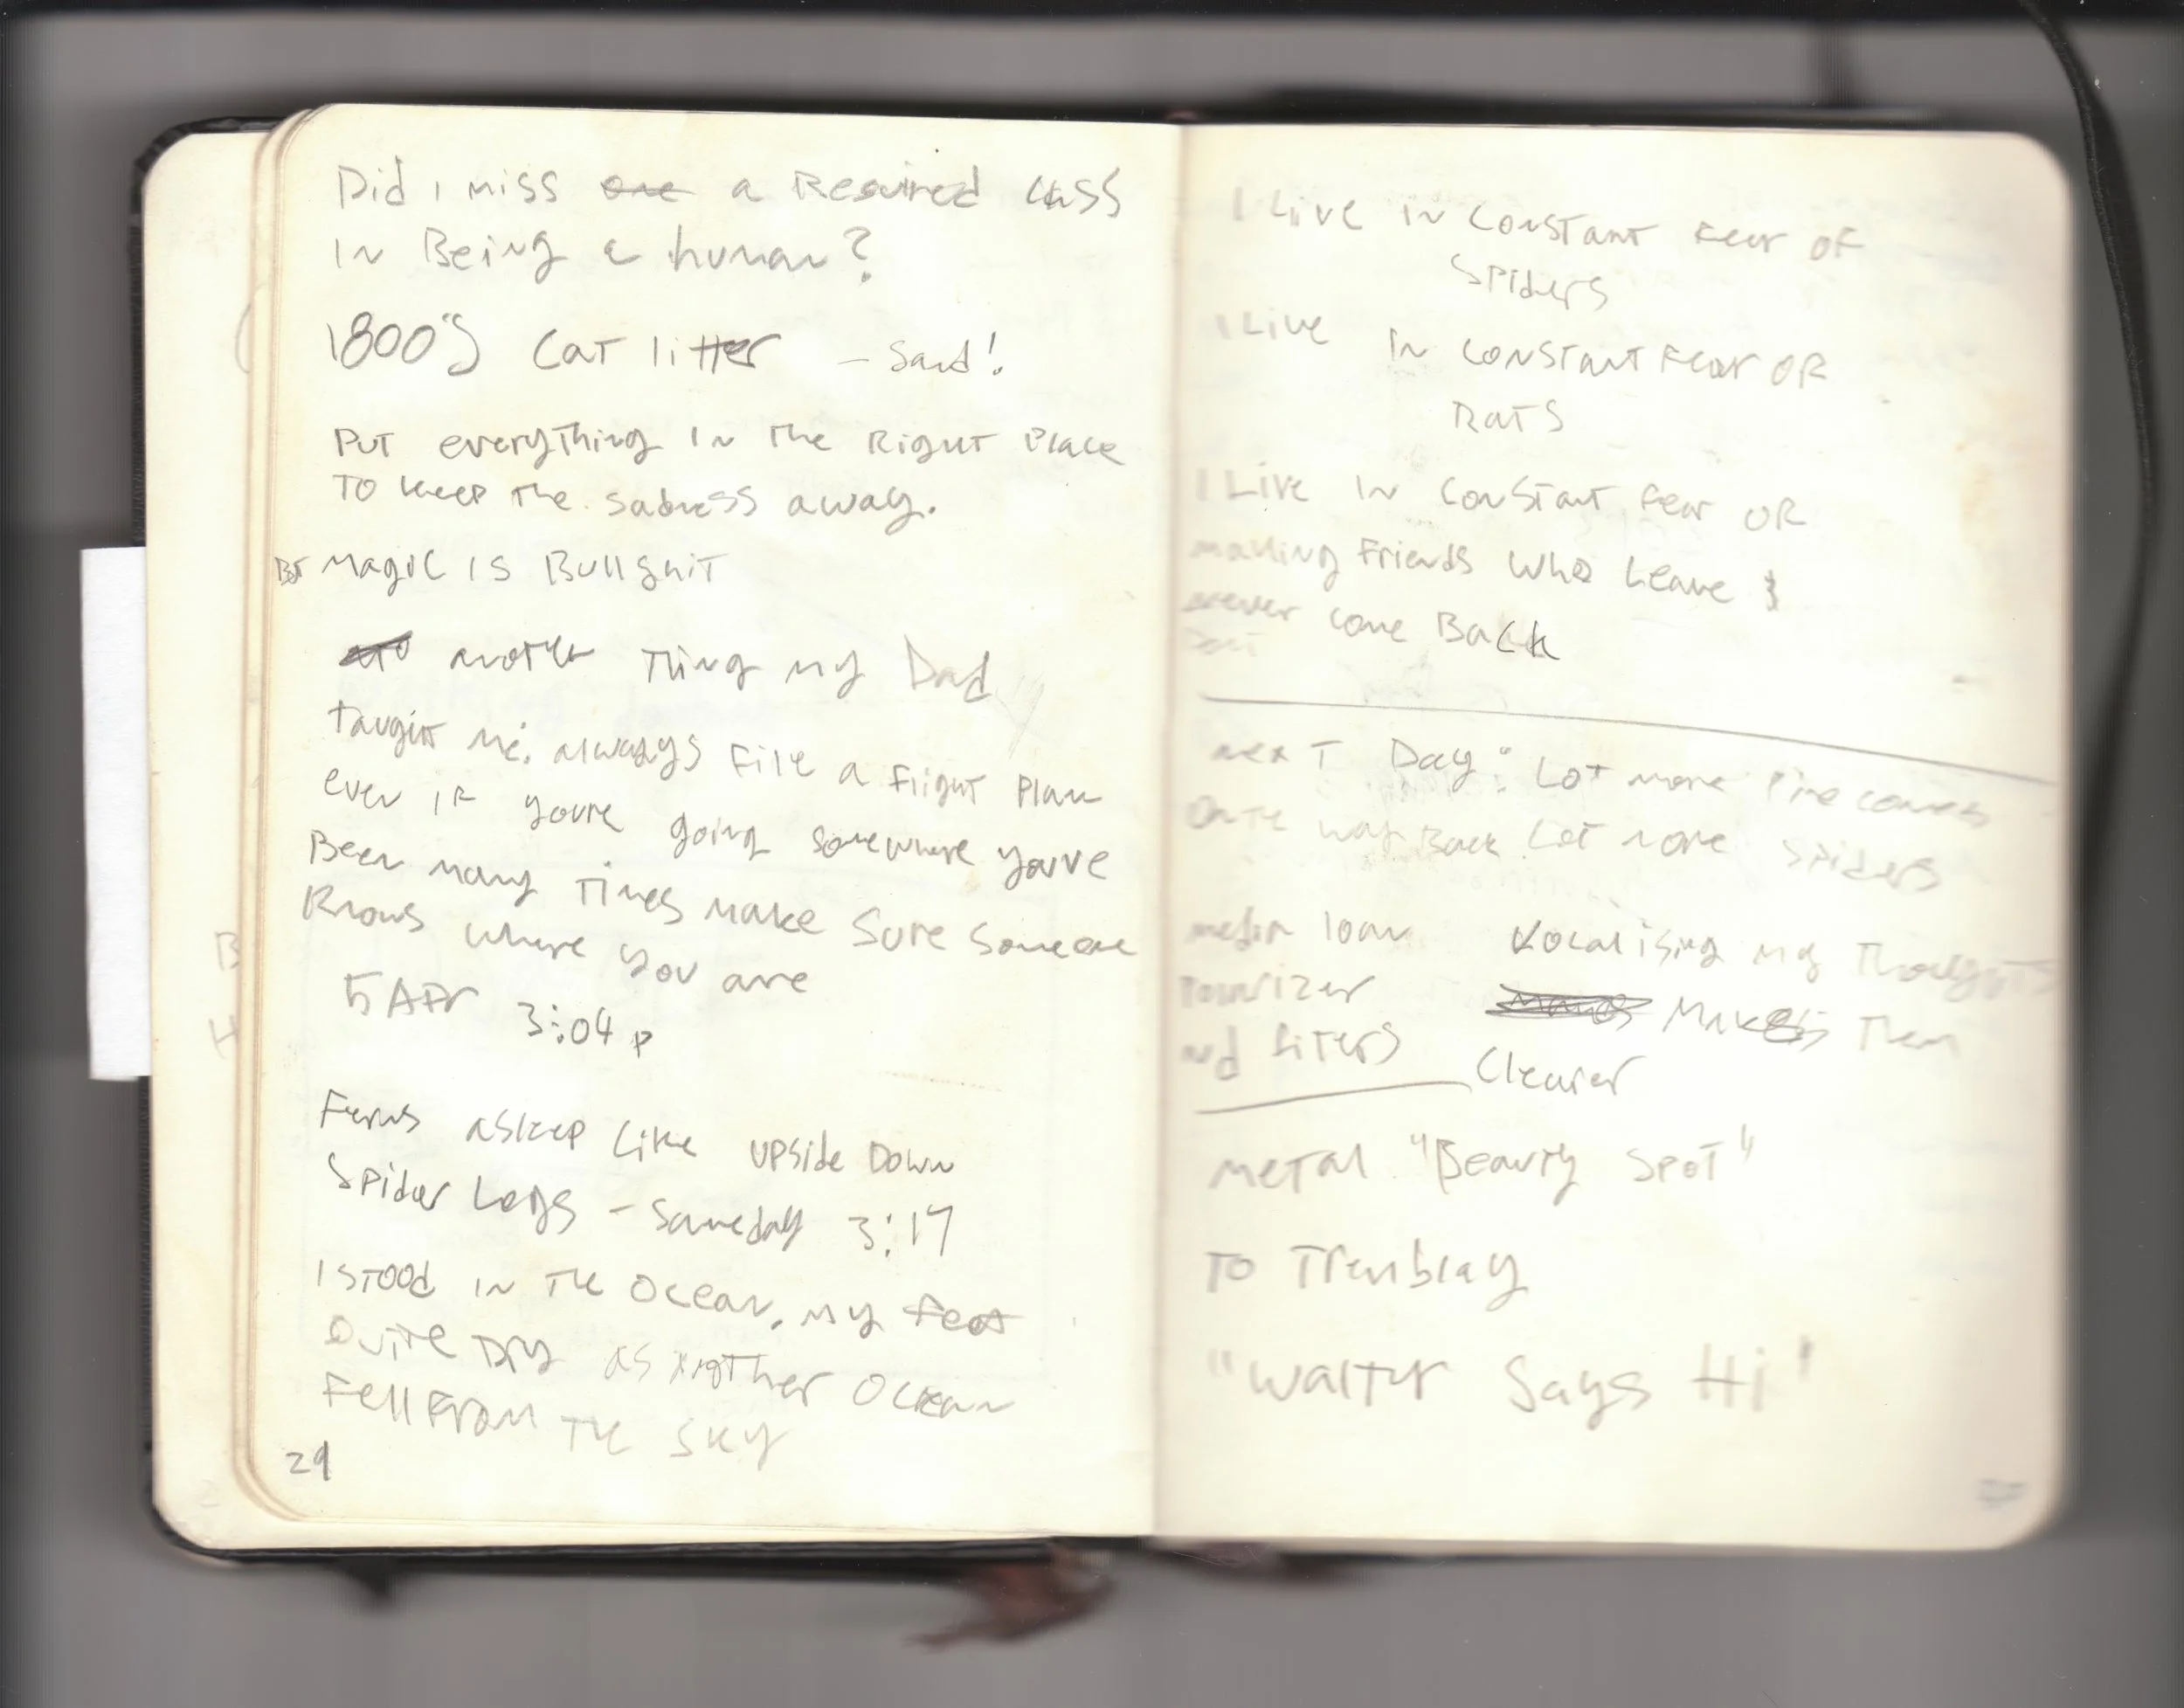 Did I miss one a Required class
in Being a human?
1800's Cat litter – Sand!
Put everything in the Right Place
To keep the sadness away.
But Magic is Bullshit
another thing my Dad
taught me: always file a flight plan
even if you're going somewhere you've
Been many times make sure someone
knows where you are
5 Apr 3:04 p
Ferns asleep like upside Down
Spider Legs – Same day 3:17
I stood in the ocean, my feet
Quite Dry as another ocean
Fell from the sky
29
I Live in constant fear of
Spiders
I Live in constant fear of
Rats
I Live in constant fear of
making friends who leave &
never come Back
next Day: Lot more Pinecones
on the way Back Lot more spiders
media loan
Polarizer
and filters
Vocalising my Thoughts
Makes Them
Clearer
Metal "Beauty Spot"
To Tremblay
"Walter Says Hi"